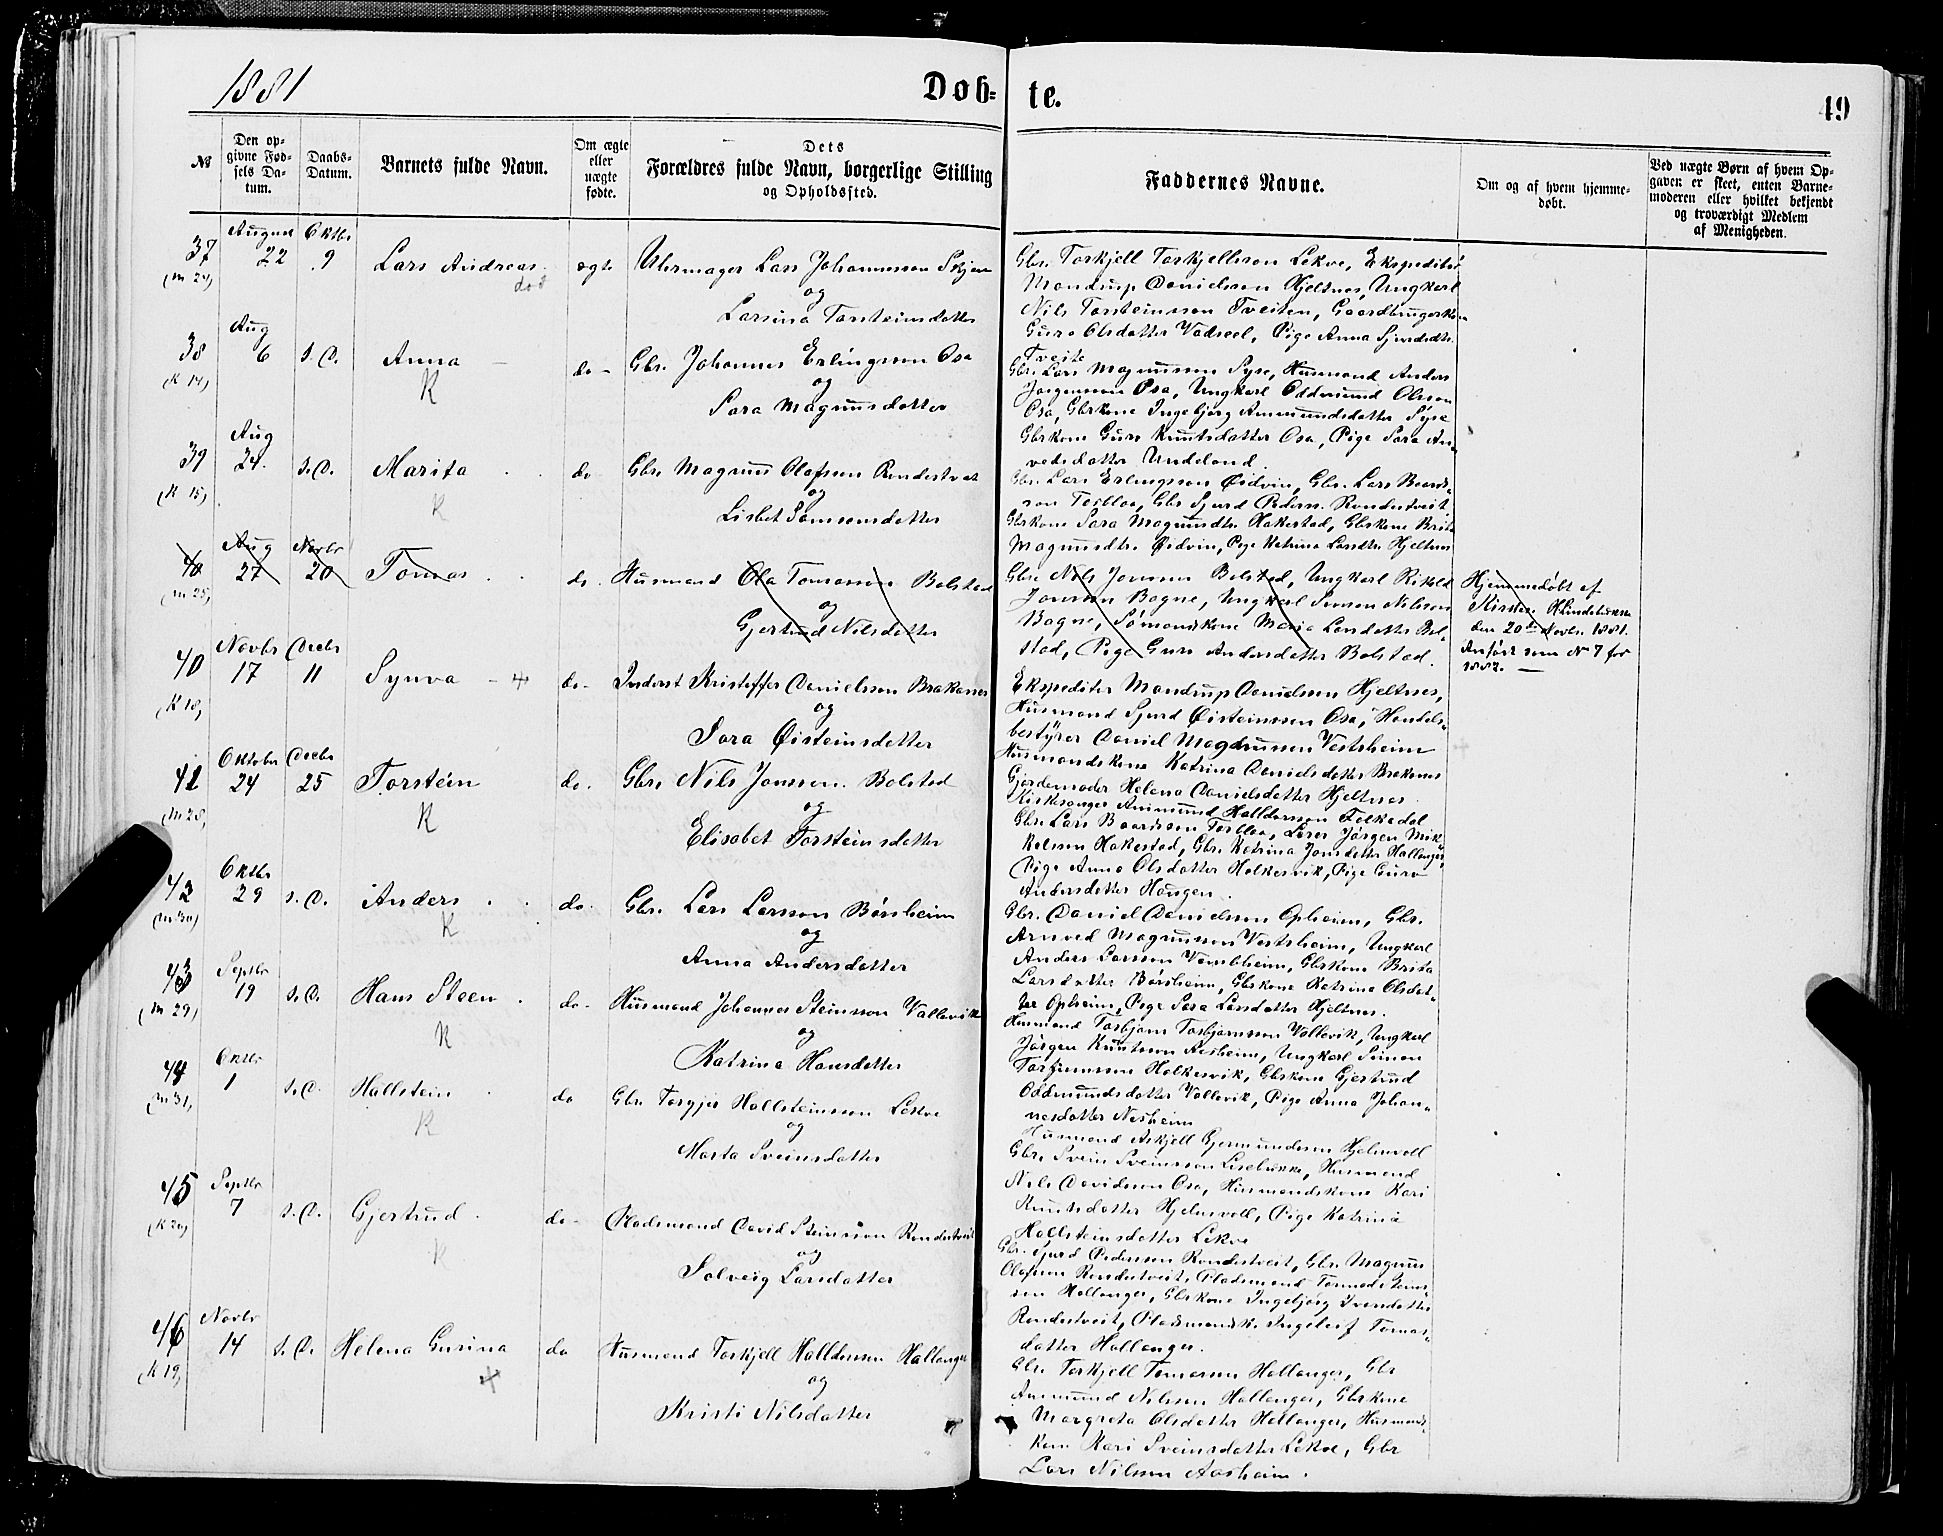 1881
Døb-
te.
49
№
Den op-
givne Fød-
sels Da-
tum.
Daabs-
Datum.
Barnets fulde Navn.
Om ægte
eller
uægte
fødte.
Dets
Forældres fulde Navn, borgerlige Stilling
og Opholdssted.
Faddernes Navne.
Om og af hvem hjemme-
døbt.
Ved uægte Børn af hvem Op-
gaven er skeet, enten Barne-
moderen eller hvilket bekjendt
og troværdigt Medlem
af Menigheden.
37
(M 24)
August
22
Oktbr
9
Lars Andreas
død
ægte
Uhrmager Lars Johannesson Skjen
og
Larsina Torsteinsdatter
Gbr. Torkjell Torkjellsson Lekve, Ekspeditør
Mandrup Danielsen Hjeltnes, Ungkarl
Nils Torsteinsson Tveiten,
Guro Olsdatter Vadseel, Pige Anna Sjursdtr.
Tveite
38
(K 14)
Aug
6
s. D.
Anna
K
do
Gbr. Johannes Erlingsson Osa
og
Sara Magnusdatter
Gbr. Lars Magnusson Syse, Husmand Anders
Jørgensen Osa, Ungkarl Oddmund Olsson
Osa, Gbrkone Ingebjørg Ammundsdatter Syse
Gbrkone Guro Knutsdatter Osa, Pige Sara Arn-
vedsdatter Undeland.
39
(K 15)
Aug
24.
s. D.
Marita
K
do
Gbr Magnus Olafsen Rondestveit
og
Lisbet Samsonsdatter
Gbr. Lars Erlingsson Øidvin, Gbr. Lars Baards-
son Torbloe, Gbr Sjurd Pedersn. Rondestveit
Gbrkone Sara Magnusdtr Hakestad, Gbrkone Brita
Magnusdtr. Øidvin, Pige Katrina Larsdtr. Hjeltnes
40
(M 25)
Aug
27
Novbr
20
Tomas
do.
Husmand Ola Tomassen Bolstad
og
Gjertrud Nilsdatter
Gbr. Nils Jonssen Bolstad, Ungkarl Rikold
Jonsson Bagne, Ungkarl Simon Nilsson
Bagne, Sømandskone Maria Larsdatter Bol-
stad, Pige Guro Andersdatter Bolstad.
Hjemmedøbt af
den 20de Novbr. 1881.
Anført som № 7 for
1882.
40
(K 18)
Novbr
17
Decbr
11
Synva
do
Inderst Kristoffer Danielsson Brakanes
og
Sara Øisteinsdatter
Ekspeditør Mandrup Danielsen Hjeltnes,
Husmand Sjurd Øisteinsson Osa, Handels-
bestyrer Daniel Magnusson Vestrheim
Husmandskone Katrina Danielsdatter Brakanes
Gjordemoder Helena Danielsdatter Hjeltnes.
41
(M 28)
Oktober
24
Decbr
25
Torstein
K
do.
Gbr. Nils Jonssen. Bolstad
og
Elisabet Torsteinsdatter
Kirkesanger Ammund Halldorsson Folkedal
Gbr. Lars Baardsson Torbloe, Lærer Jørgen Mik-
kelsen Hakestad, Gbr. Katrina Jonsdatter Hallanger
Pige Anna Olsdatter Holkesvik, Pige Guro
Andersdatter Haugen.
42
(M 30)
Oktbr
29
s. D.
Anders
K
do
Gbr. Lars Larsson Børsheim
og
Anna Andersdatter
Gbr. Daniel Danielssen Opheim, Gbr.
Arnved Magnusson Vestrheim, Ungkarl
Anders Larsson Vambheim, Gbrkone Brita
Larsdatter Børsheim, Gbrkone Katrina Olsdat-
ter Opheim, Pige Sara Larsdatter Hjeltnes.
43
(M 29)
Septbr
19
s. D.
Hans Steen
K
do
Husmand Johannes Steinsson Vallavik
og
Katrina Hansdatter
Husmand Torbjørn Torbjørnsson Vallavik, Ungkarl
Jørgen Knutsson Nesheim, Ungkarl Simon
Torbjørnsson Holkesvik, Gbrkone Gjertrud
Oddmundsdatter Vallavik, Pige Anna Johan-
nesdatter Nesheim
44
(M 31)
Oktbr
1
s. D.
Hallstein
K
do
Gbr. Torgjer Hallsteinsson Lekve
og
Marta Sveinsdatter
Husmand Askjell Gjermundssen Hjelmvoll
Gbr. Svein Sveinsson Lisebrekke, Husmand
Nils Davidsson Osa, Husmandskone Kari
Knutsdatter Hjelmvoll, Pige Katrina
Hallsteinsdatter Lekve
45
(K 20)
Septbr
7
s. D.
Gjertrud
K
do
Pladsmand David Steinsson Rondestveit
og
Solveig Larsdatter
Gbr. Sjurd Pedersson Rondestveit, Gbr. Magnus
Olafsson Rondestveit, Pladsmand
Hallanger, Gbrkone Ingebjørg Iversdatter
Rondestveit, Pladsmandsk. Ingeleif Tomas-
datter Hallanger.
46
(K 19)
Novbr
14
s. D.
Helena Gurina
do
Husmand Torkjell Halldorsen Hallanger
og
Kristi Nilsdatter
Gbr. Torkjell Tomassen Hallanger, Gbr
Ammund Nilssen Hallanger, Gbrkone
Margreta Olsdatter Hallanger, Husmands-
kone Kari Sveinsdatter Lekve, Gbr
Lars Nilssen Aasheim.